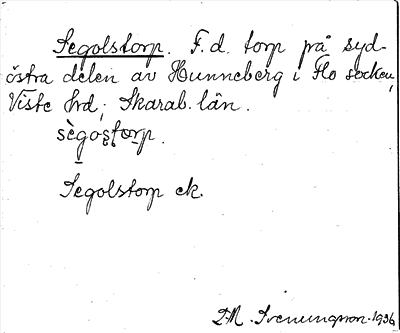 Segolstorp. F.d. torp på syd-
östra delen av Hunneberg i Flo socken,
Viste hrd, Skarab. län.
sègosto̱rp.
Segolstorp ek.
D.M. Svenungsson. 1936